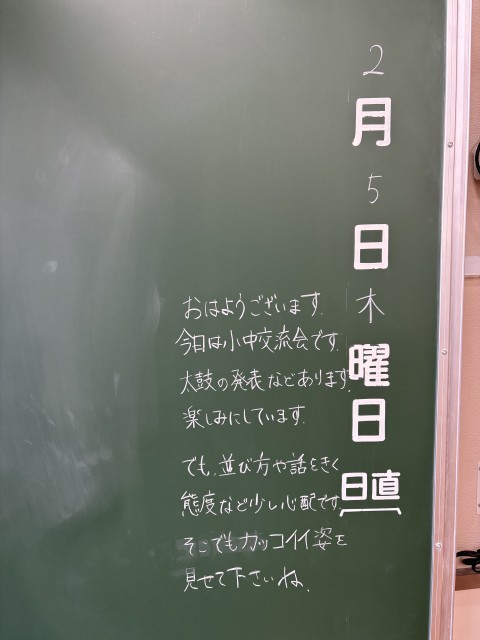 2月5日木曜日
日直
おはようございます.
今日は小中交流会です.
太鼓の発表などあります.
楽しみにしています.
でも,並び方や話をきく
態度など少し心配です
そこでもカッコイイ姿を
見せて下さいね.